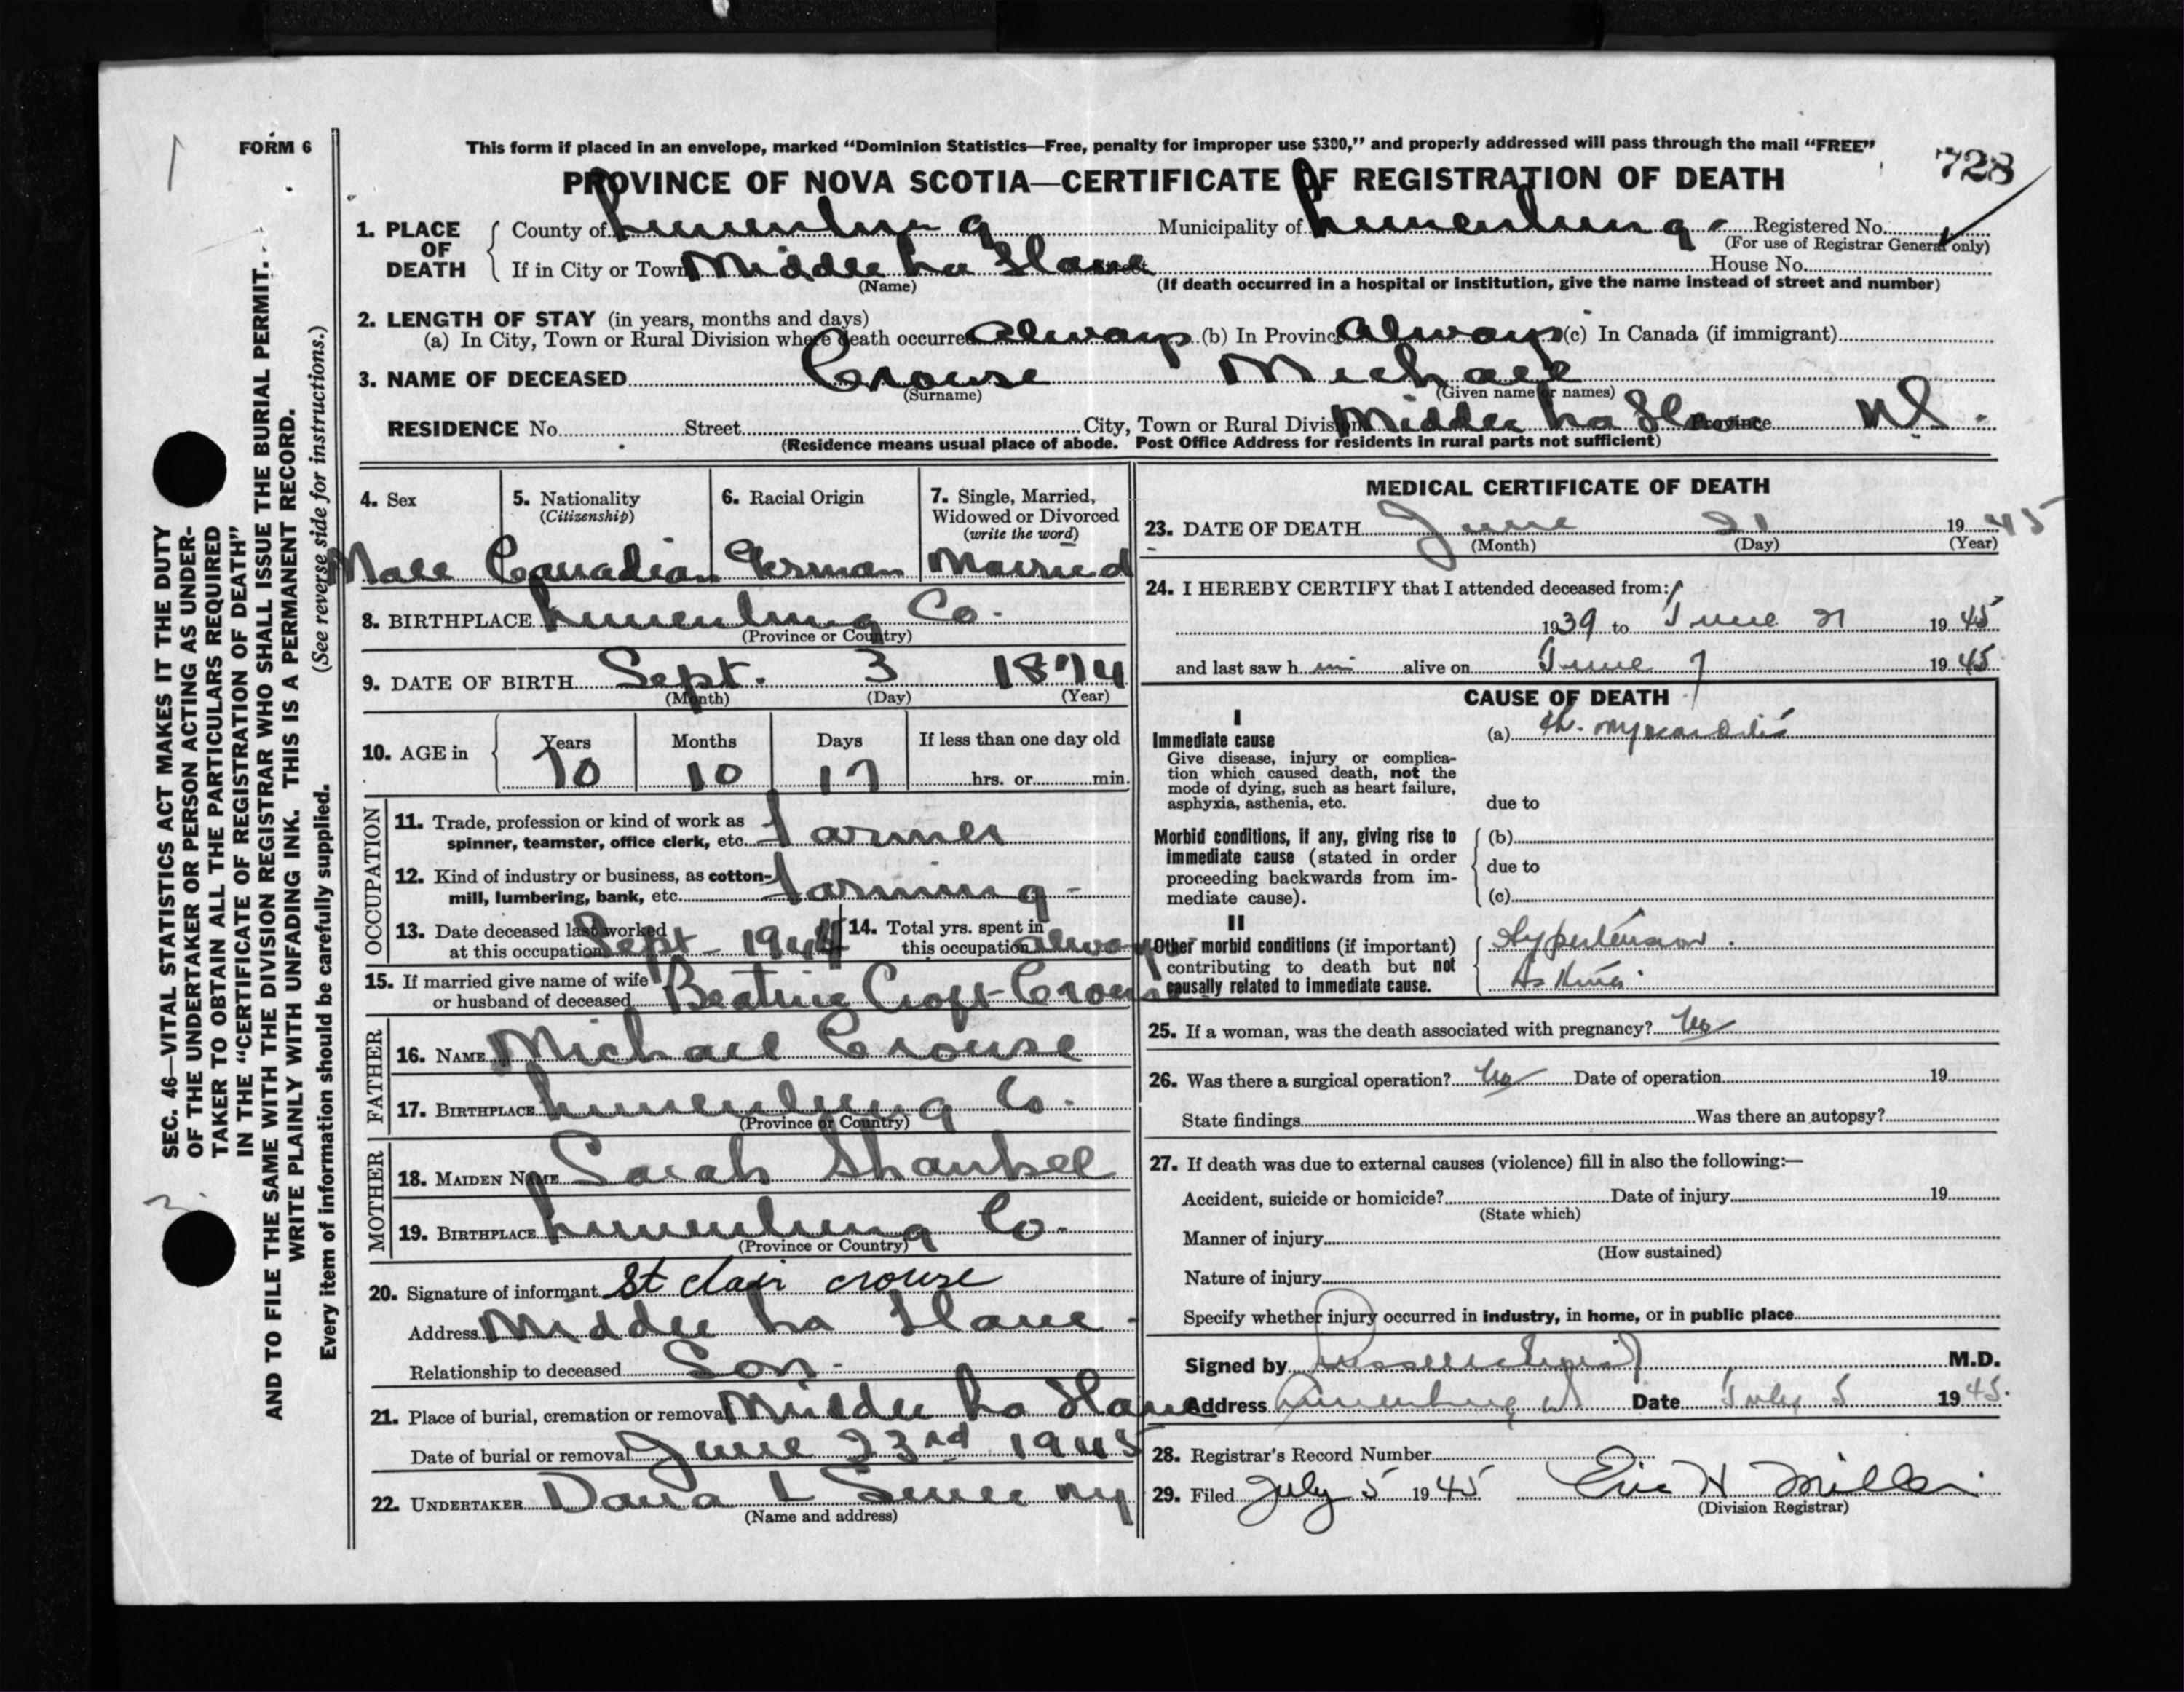 FORM 6
This form if placed in an envelope, marked "Dominion Statistics—Free, penalty for improper use $300," and properly addressed will pass through the mail "FREE"
728
PROVINCE OF NOVA SCOTIA—CERTIFICATE OF REGISTRATION OF DEATH
1. PLACE OF DEATH
County of Lunenburg Municipality of Lunenburg Registered No.
(For use of Registrar General only)
If in City or Town Middle La Have Street House No.
(Name) (If death occurred in a hospital or institution, give the name instead of street and number)
2. LENGTH OF STAY (in years, months and days)
(a) In City, Town or Rural Division where death occurred always (b) In Province always (c) In Canada (if immigrant)
3. NAME OF DECEASED Crouse Michael
(Surname) (Given name or names)
RESIDENCE No. Street City, Town or Rural Division Middle La Have Province NS.
(Residence means usual place of abode. Post Office Address for residents in rural parts not sufficient)
4. Sex
Male
5. Nationality
(Citizenship)
Canadian
6. Racial Origin
German
7. Single, Married, Widowed or Divorced
(write the word)
Married
8. BIRTHPLACE Lunenburg Co.
(Province or Country)
9. DATE OF BIRTH Sept. 3 1874
(Month) (Day) (Year)
10. AGE in Years Months Days If less than one day old
70 10 17 hrs. or min.
OCCUPATION
11. Trade, profession or kind of work as
spinner, teamster, office clerk, etc. Farmer
12. Kind of industry or business, as cotton-
mill, lumbering, bank, etc. Farming
13. Date deceased last worked
at this occupation Sept 1944
14. Total yrs. spent in
this occupation always
15. If married give name of wife
or husband of deceased Beatrice Croft Crouse
FATHER
16. NAME Michael Crouse
17. BIRTHPLACE Lunenburg Co.
(Province or Country)
MOTHER
18. MAIDEN NAME Sarah Shankel
19. BIRTHPLACE Lunenburg Co.
(Province or Country)
20. Signature of informant St clair crouse
Address Middle La Have
Relationship to deceased Son
21. Place of burial, cremation or removal Middle La Have
Date of burial or removal June 23rd 1945
22. UNDERTAKER Dana L Sweeny
(Name and address)
MEDICAL CERTIFICATE OF DEATH
23. DATE OF DEATH June 21 1945
(Month) (Day) (Year)
24. I HEREBY CERTIFY that I attended deceased from:
1939 to June 21 1945
and last saw him alive on June 7 1945
CAUSE OF DEATH
I
Immediate cause
Give disease, injury or complica-
tion which caused death, not the
mode of dying, such as heart failure,
asphyxia, asthenia, etc.
(a) Ch. Myocarditis
due to
Morbid conditions, if any, giving rise to
immediate cause (stated in order
proceeding backwards from im-
mediate cause).
(b)
due to
(c)
II
Other morbid conditions (if important)
contributing to death but not
causally related to immediate cause.
Hypertension.
Asthma
25. If a woman, was the death associated with pregnancy? No
26. Was there a surgical operation? No Date of operation 19
State findings Was there an autopsy?
27. If death was due to external causes (violence) fill in also the following:—
Accident, suicide or homicide? Date of injury 19
(State which)
Manner of injury
(How sustained)
Nature of injury
Specify whether injury occurred in industry, in home, or in public place
Signed by Russell M.D.
Address Lunenburg NS Date July 5 1945.
28. Registrar's Record Number
29. Filed July 5 1945 Eric H Miller
(Division Registrar)
SEC. 46—VITAL STATISTICS ACT MAKES IT THE DUTY
OF THE UNDERTAKER OR PERSON ACTING AS UNDER-
TAKER TO OBTAIN ALL THE PARTICULARS REQUIRED
IN THE "CERTIFICATE OF REGISTRATION OF DEATH"
AND TO FILE THE SAME WITH THE DIVISION REGISTRAR WHO SHALL ISSUE THE BURIAL PERMIT.
WRITE PLAINLY WITH UNFADING INK. THIS IS A PERMANENT RECORD.
Every item of information should be carefully supplied. (See reverse side for instructions.)